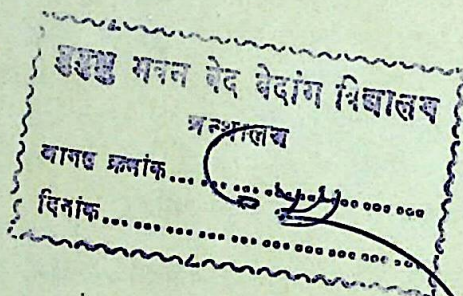 मुमुक्षु भवन वेद वेदांग विद्यालय
ग्रन्थालय
आगत क्रमांक......................
दिनांक..............................